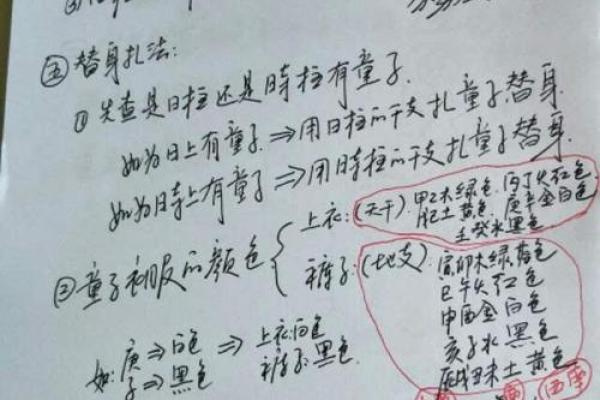 ㊄替身扎法:
①先查是日柱还是时柱有童子.
如为日上有童子⇒用日柱的干支扎童子替身
如为时上有童子⇒用时柱的干支扎童子替身
②童子衣服的颜色
上衣:(天干).甲乙木绿色.丙丁火红色
戊己土黄色.庚辛金白色
壬癸水黑色
裤子:(地支).寅卯木绿色
巳午火红色
申酉金白色
亥子水黑色
辰戌丑未土黄色
如:庚⇒白色
子⇒黑色
⇒上衣:白色
裤子:黑色.